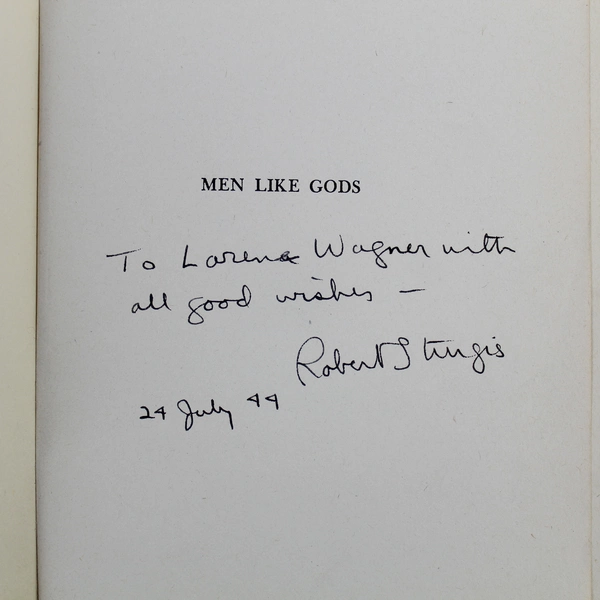 MEN LIKE GODS
To Lorena Wagner with
all good wishes —
Robert Sturgis
24 July 44